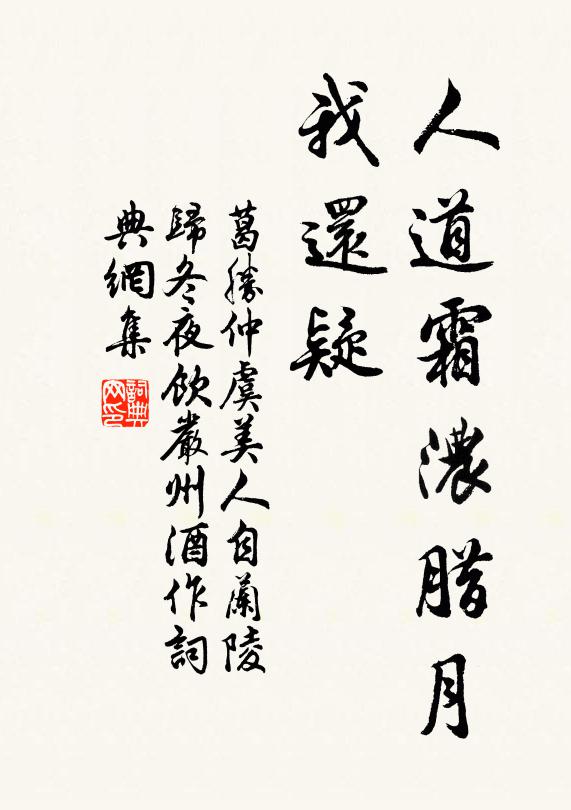 人道霜濃腊月
我還疑
葛勝仲虞美人自蘭陵
歸冬夜飲嚴州酒作詞
典網集
詞典網印